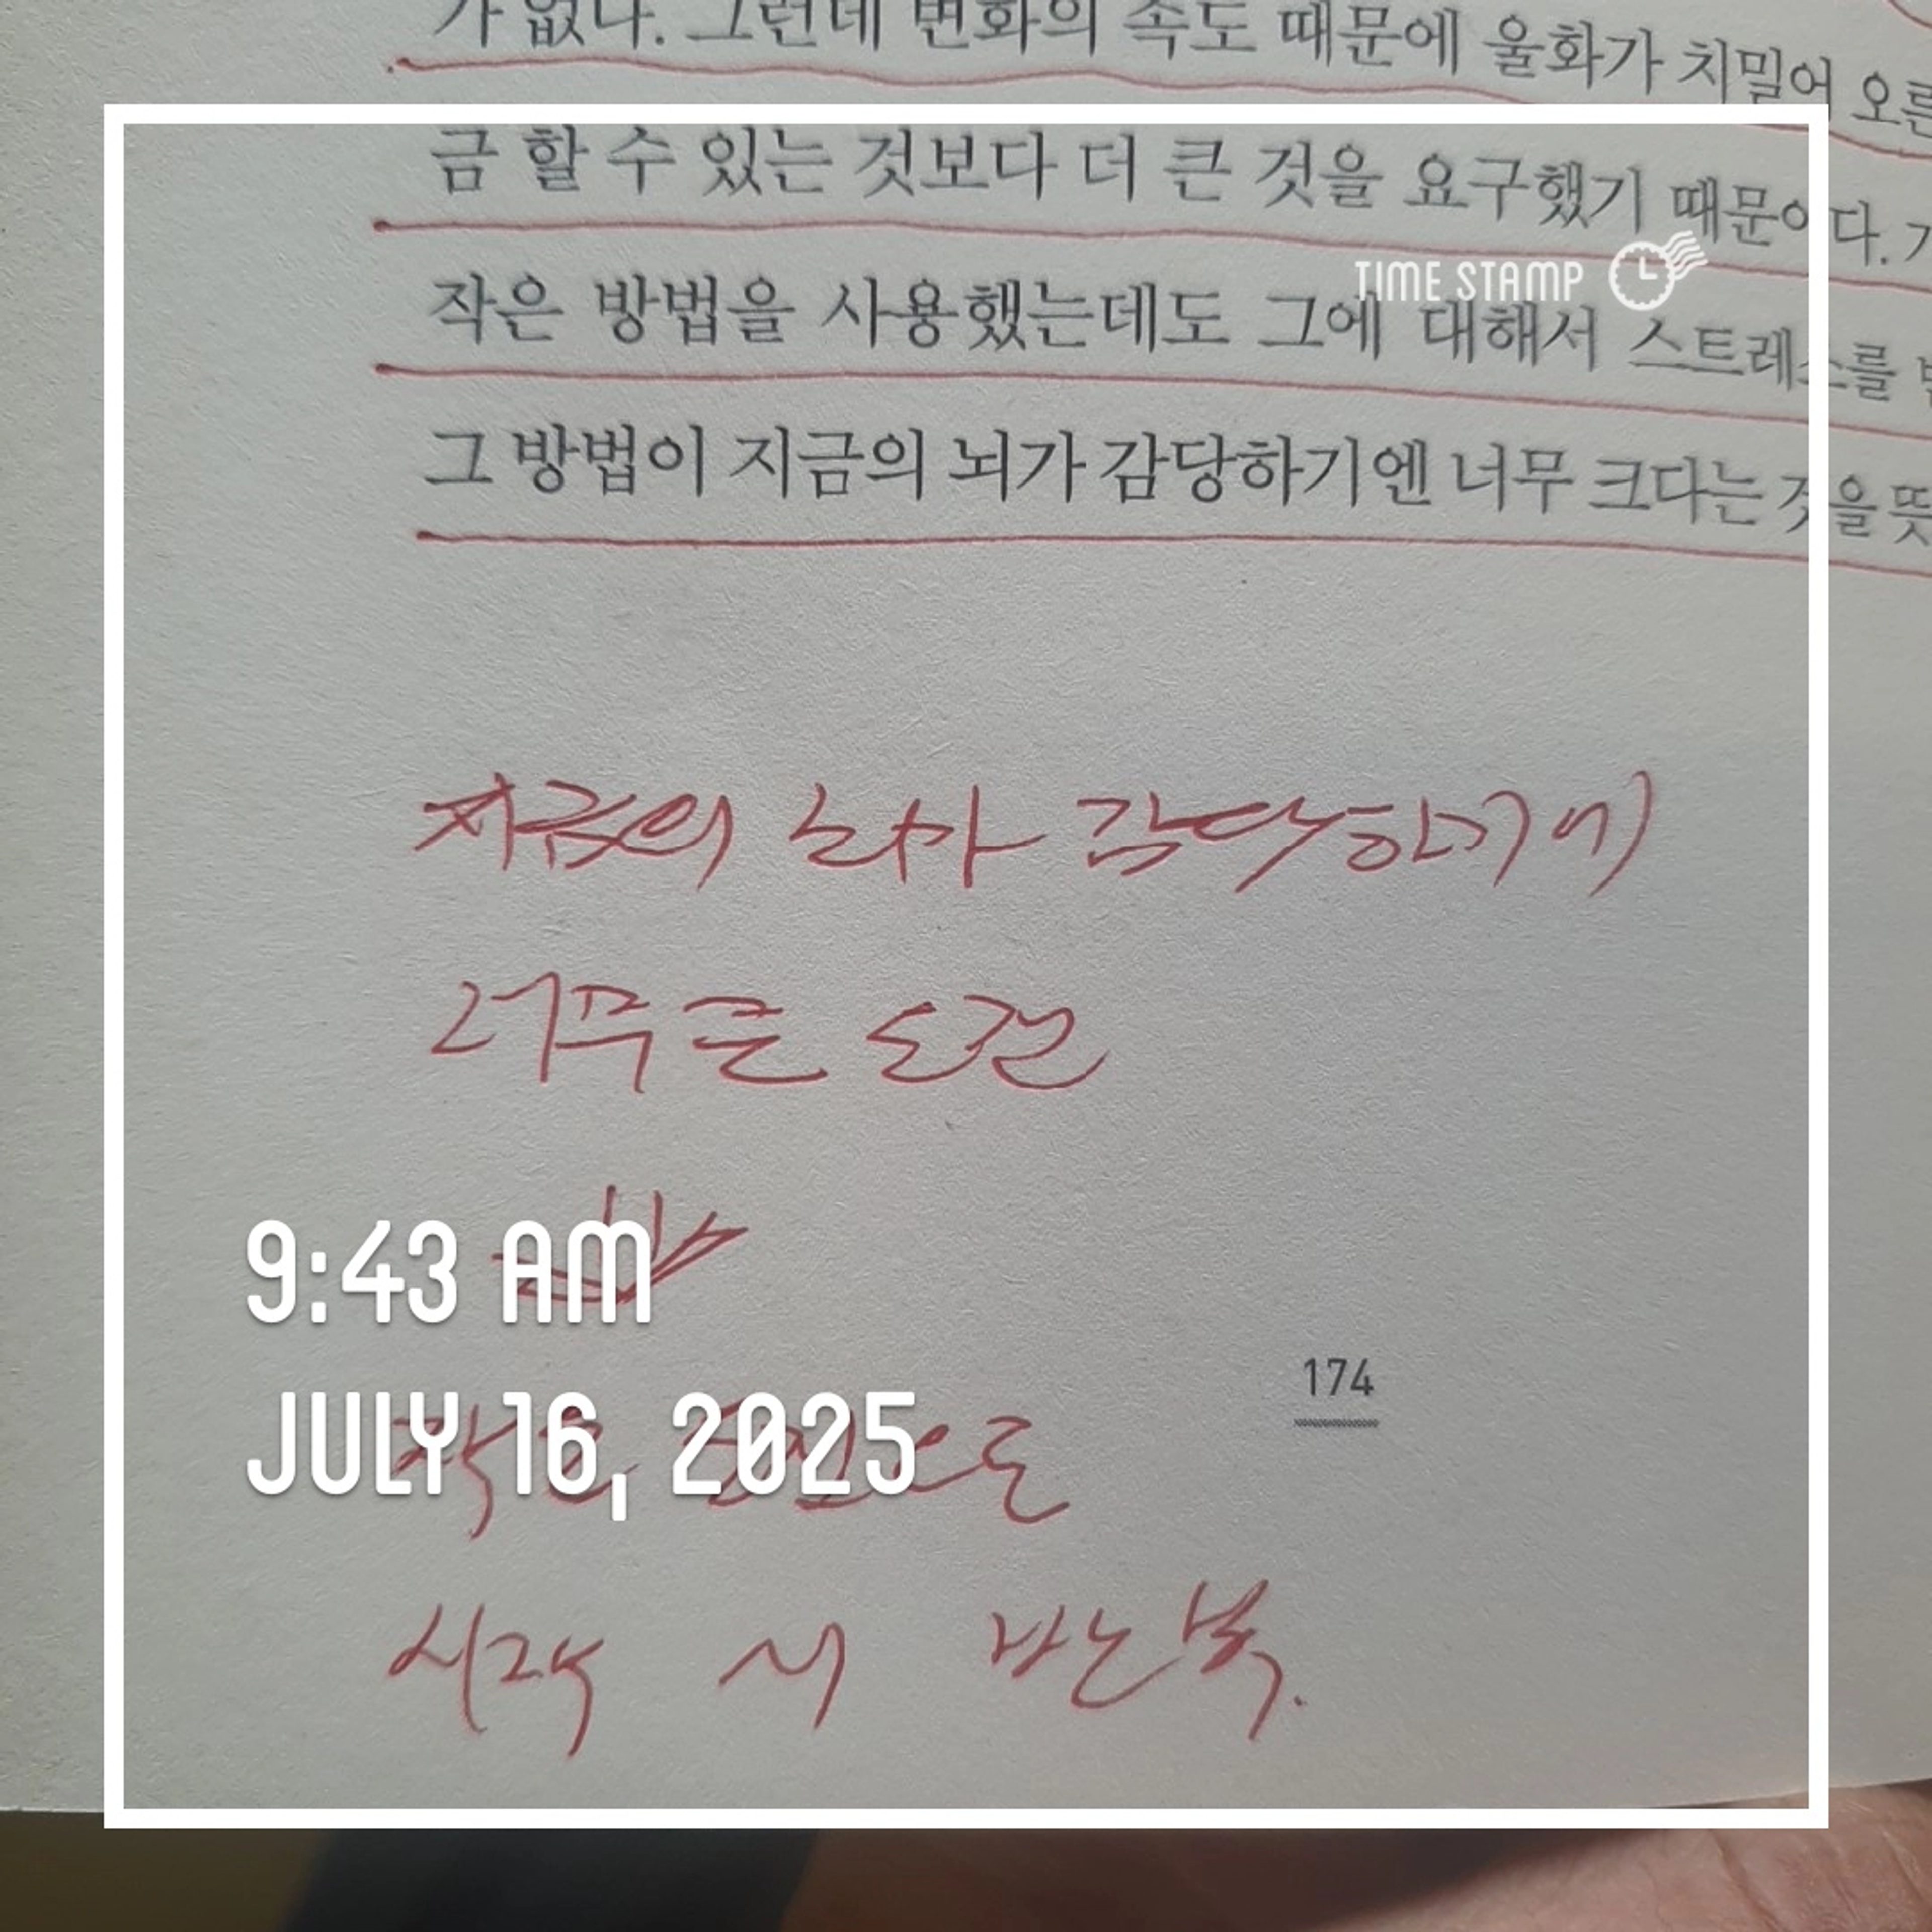 가 없다. 그런데 변화의 속도 때문에 울화가 치밀어 오른
금 할 수 있는 것보다 더 큰 것을 요구했기 때문이다.
TIME STAMP
작은 방법을 사용했는데도 그에 대해서 스트레스를
그 방법이 지금의 뇌가 감당하기엔 너무 크다는 것을 뜻
지금의 뇌가 감당하기에
너무 큰 도전
9:43 AM
174
JULY 16, 2025
작은 도전으로
시작 시 반복.